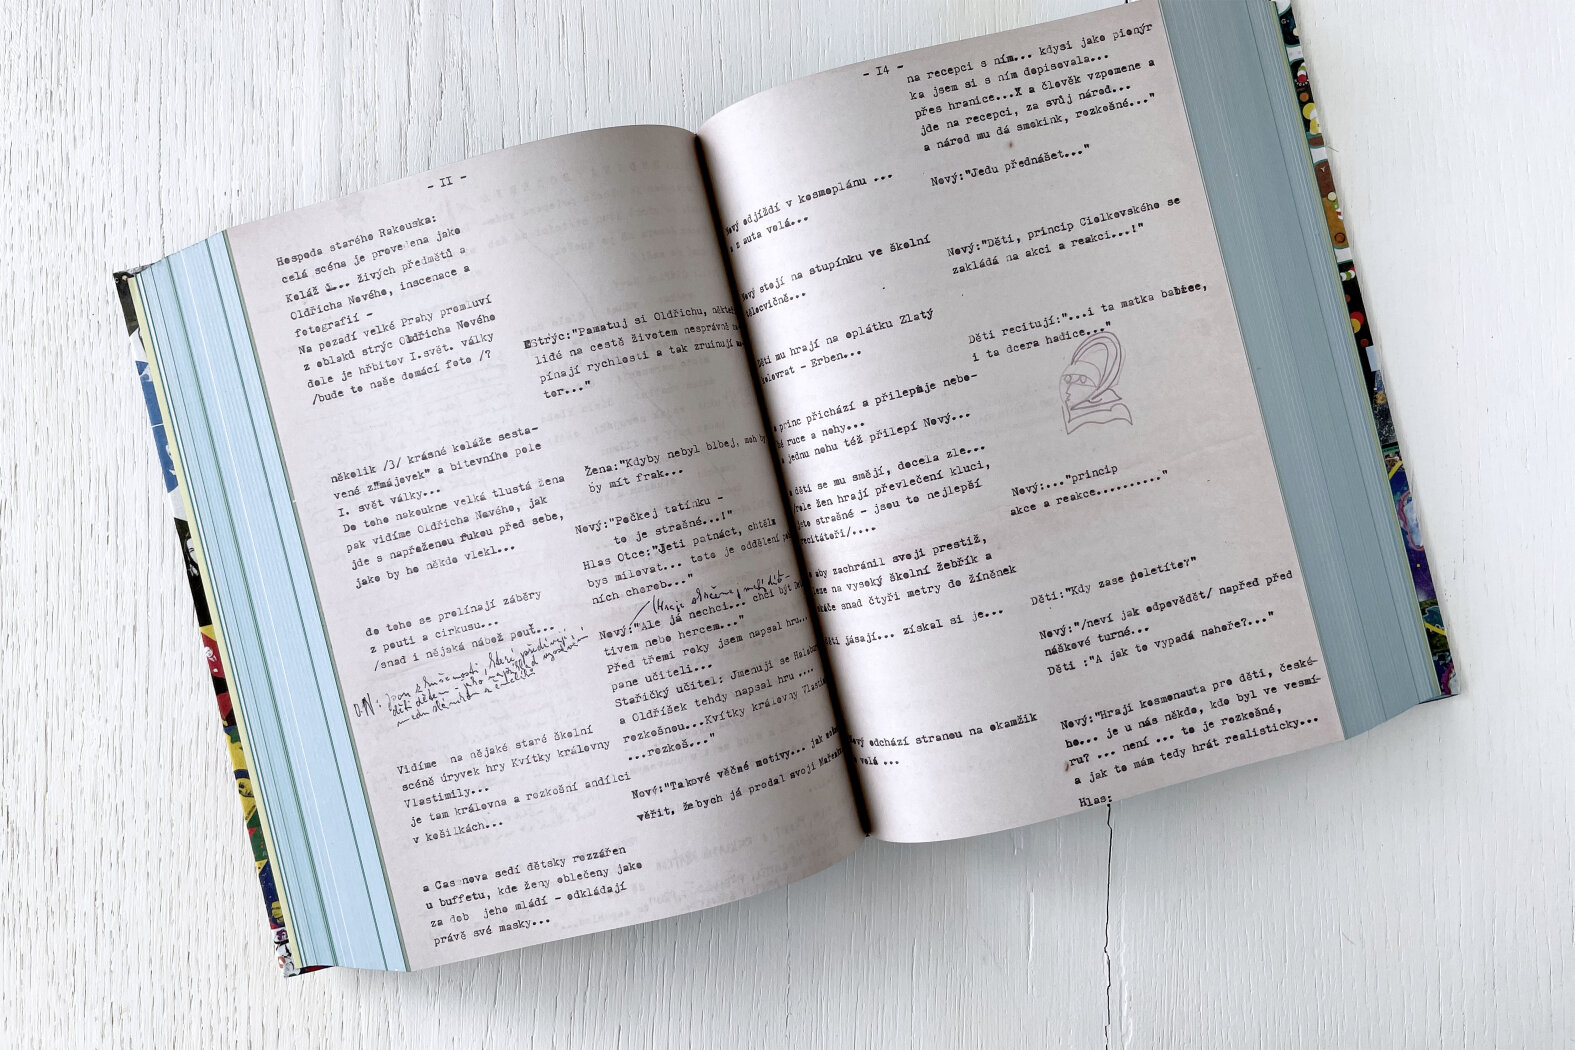 - II -
Hospoda starého Rakouska:
celá scéna je provedena jako
Koláž živých předmětů a
Oldřicha Nového, inscenace a
fotografií -
Na pozadí velké Prahy promluví
z oblaků strýc Oldřicha Nového
dole je hřbitov I.svět. války
/bude to naše domácí foto /?
Strýc:"Pamatuj si Oldřichu,
lidé na cestě životem nesprávně
pínají rychlosti a tak zruinují
tor..."
několik /3/ krásné koláže sesta-
vené z"májovek" a bitevního pole
I. svět války...
Do toho nakoukne velká tlustá žena
pak vidíme Oldřicha Nového, jak
jde s napřaženou rukou před sebe,
jako by ho někdo vlekl...
Žena:"Kdyby nebyl blbej, moh by
by mít frak...
Nový:"Počkej tatínku -
to je strašné...!"
Hlas Otce:"Jeti patnáct, chtěls
bys milovat... toto je oddělení
ních chorob..."
do toho se prolínají záběry
z pouti a cirkusu...
/snad i nějaká nábož pouť...
Nový:"Ale já nechci... chci být
tivem nebo hercem..."
Před třemi roky jsem napsal hru...
pane učiteli...
Stařičký učitel: Jmenuji se
a Oldříšek tehdy napsal hru ....
rozkošnou...Kvítky královny
...rozkoš..."
Vidíme na nějaké staré školní
scéně úryvek hry Kvítky královny
Vlastimily...
je tam královna a rozkošní andílci
v košilkách...
Nový:"Takové věčné motivy... jak
věřit, žebych já prodal svoji
a Casanova sedí dětsky rozzářen
u buffetu, kde ženy oblečeny jako
za dob jeho mládí - odkládají
právě své masky...
- I4 -
na recepci s ním... kdysi jako pionýr
ka jsem si s ním dopisovala...
přes hranice...X a člověk vzpomene a
jde na recepci, za svůj národ...
a národ mu dá smokink, rozkošné..."
Nový:"Jedu přednášet..."
Nový odjíždí v kosmoplánu ...
z auta volá...
Nový stojí na stupínku ve školní
tělocvičně...
Nový:"Děti, princip Ciolkovského se
zakládá na akci a reakci...!"
Děti mu hrají na oplátku Zlatý
kolovrat - Erben...
Děti recitují:"...i ta matka babice,
i ta dcera hadice..."
princ přichází a přilepuje nebo-
ruce a nohy...
jednu nohu též přilepí Nový...
děti se mu smějí, docela zle...
role žen hrají převlečení kluci,
strašné - jsou to nejlepší
recitátoři/....
Nový:..."princip
akce a reakce.........."
aby zachránil svoji prestiž,
leze na vysoký školní žebřík a
skáče snad čtyři metry do žíněnek
Děti:"Kdy zase poletíte?"
děti jásají... získal si je...
Nový:"/neví jak odpovědět/ napřed před
náškové turné...
Děti :"A jak to vypadá nahoře?..."
Nový odchází stranou na okamžik
volá ...
Nový:"Hrají kosmonauta pro děti, české-
ho... je u nás někdo, kdo byl ve vesmí-
ru? ... není ... to je rozkošné,
a jak to mám tedy hrát realisticky...
Hlas: